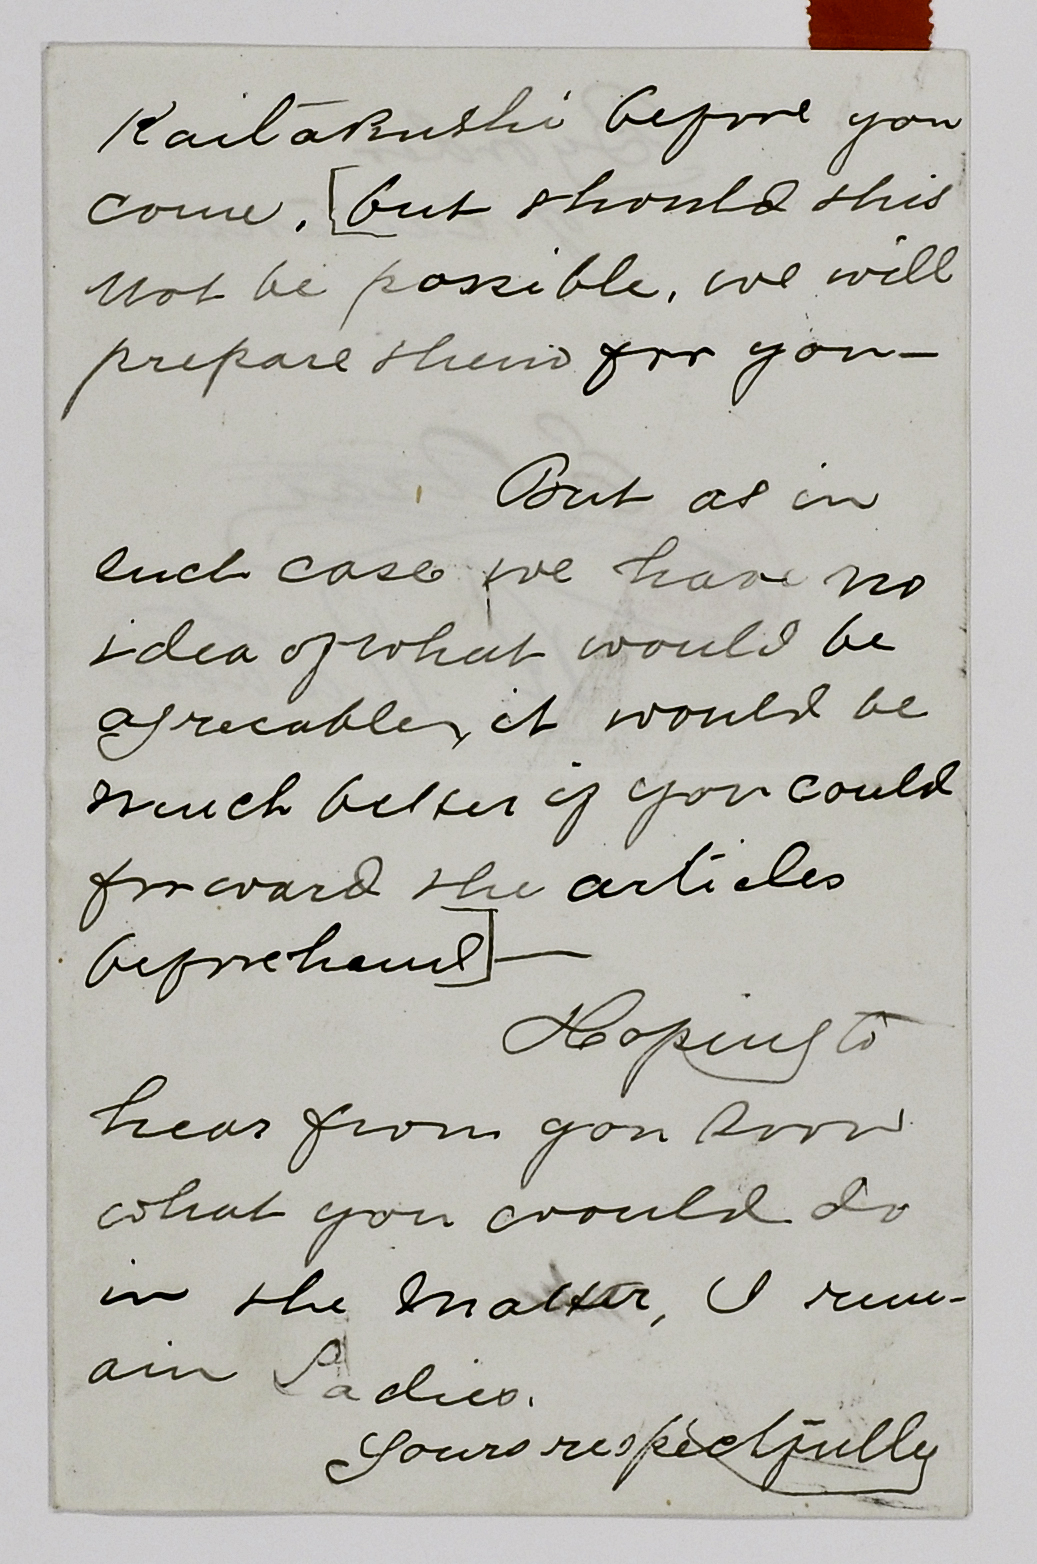 Kaitakushi before you
come. [but should this
not be possible, we will
prepare them for you—
But as in
such case we have no
idea of what would be
agreeable, it would be
much better if you could
forward the articles
beforehand]—
Hoping to
hear from you soon
what you would do
in the matter, I rem-
ain Ladies.
Yours respectfully